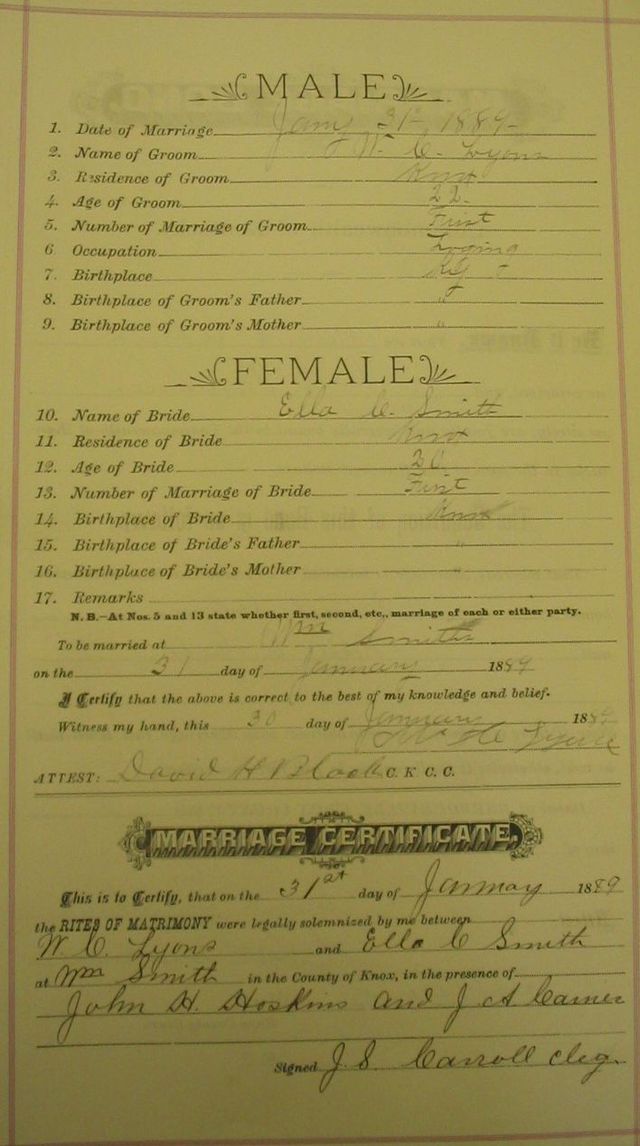 MALE
1. Date of Marriage Jany 31- 1889-
2. Name of Groom W. C. Lyons
3. Residence of Groom Knox
4. Age of Groom 22-
5. Number of Marriage of Groom First
6 Occupation Loging
7. Birthplace Ky
8. Birthplace of Groom's Father "
9. Birthplace of Groom's Mother "
FEMALE
10. Name of Bride Ella C. Smith
11. Residence of Bride Knox
12. Age of Bride
13. Number of Marriage of Bride First
14. Birthplace of Bride Knox
15. Birthplace of Bride's Father "
16. Birthplace of Bride's Mother "
17. Remarks
N. B.—At Nos. 5 and 13 state whether first, second, etc., marriage of each or either party.
To be married at Wm Smiths
on the 31 day of January 1889
I Certify that the above is correct to the best of my knowledge and belief.
Witness my hand, this 30 day of January 1889
Lyons
ATTEST: David H Black C. K C. C.
MARRIAGE CERTIFICATE.
This is to Certify, that on the 31st day of January 1889
the RITES OF MATRIMONY were legally solemnized by me between
W. C. Lyons and Ella C Smith
at Wm Smith in the County of Knox, in the presence of
John H. Hoskins and J A
Signed J. S. Carroll cleg.